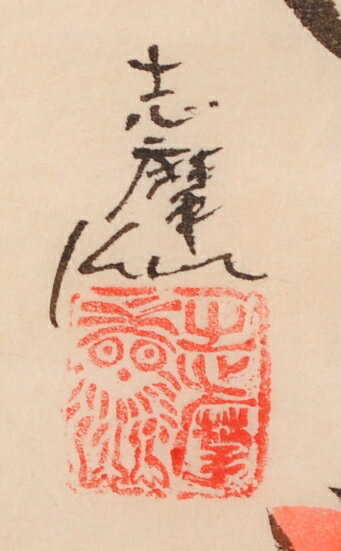 志摩
Kun
志摩